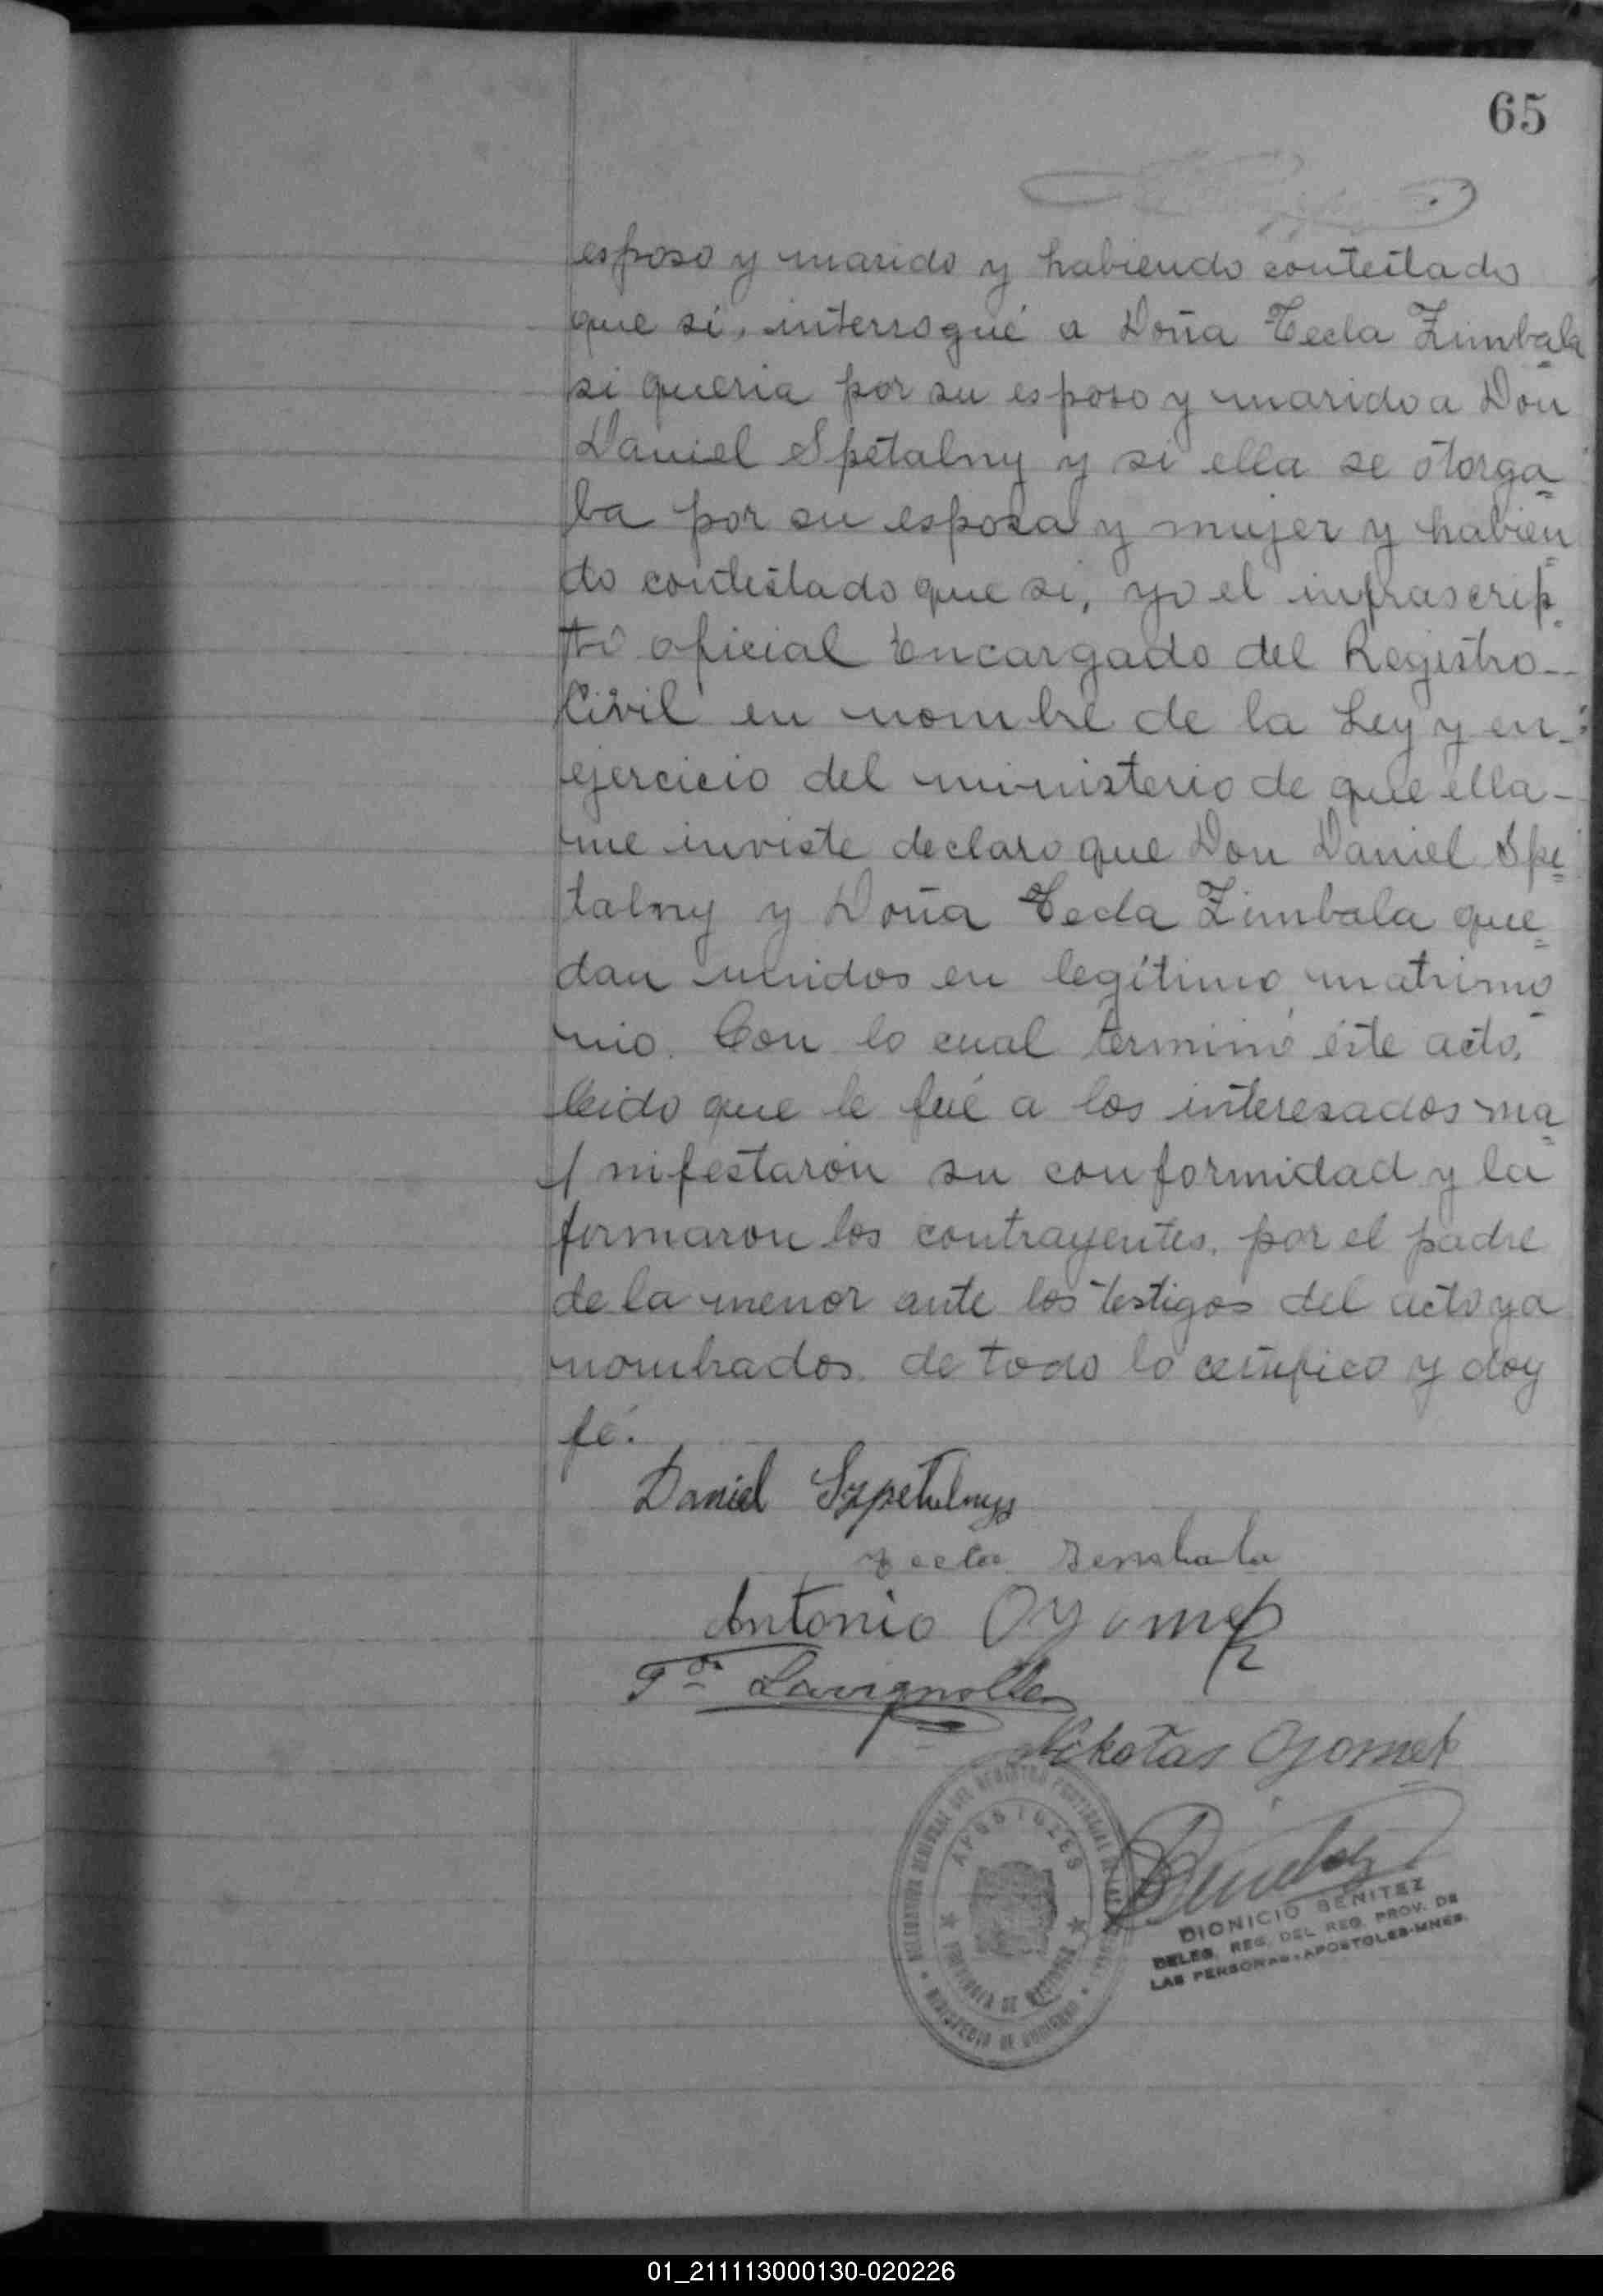 65
esposo y marido y habiendo contestado
que si, interrogué a Doña Tecla Zimbala
si queria por su esposo y marido a Don
Daniel Spetalny y si ella se otorga=
ba por su esposa y mujer y habien=
do contestado que si, yo el infrascrip=
to oficial Encargado del Registro--
Civil en nombre de la Ley y en-
ejercicio del ministerio de que ella-
me inviste declaro que Don Daniel Spe=
talny y Doña Tecla Zimbala que=
dan unidos en legítimo matrimo=
nio. Con lo cual terminó éste acto,
leido que le fué a los interesados ma=
nifestaron su conformidad y la
firmaron los contrayentes, por el padre
de la menor ante los testigos del acto ya
nombrados. de todo lo certifico y doy
fé.
Daniel Szpetulnyj
Antonio
Lavignolle
Nikolas
APOSTOLES
PROVINCIA DE MISIONES
MINISTERIO DE GOBIERNO
DIONICIO BENITEZ
DELEG. REG. DEL REG. PROV. DE
LAS PERSONAS-APOSTOLES-MNES.
01_211113000130-020226